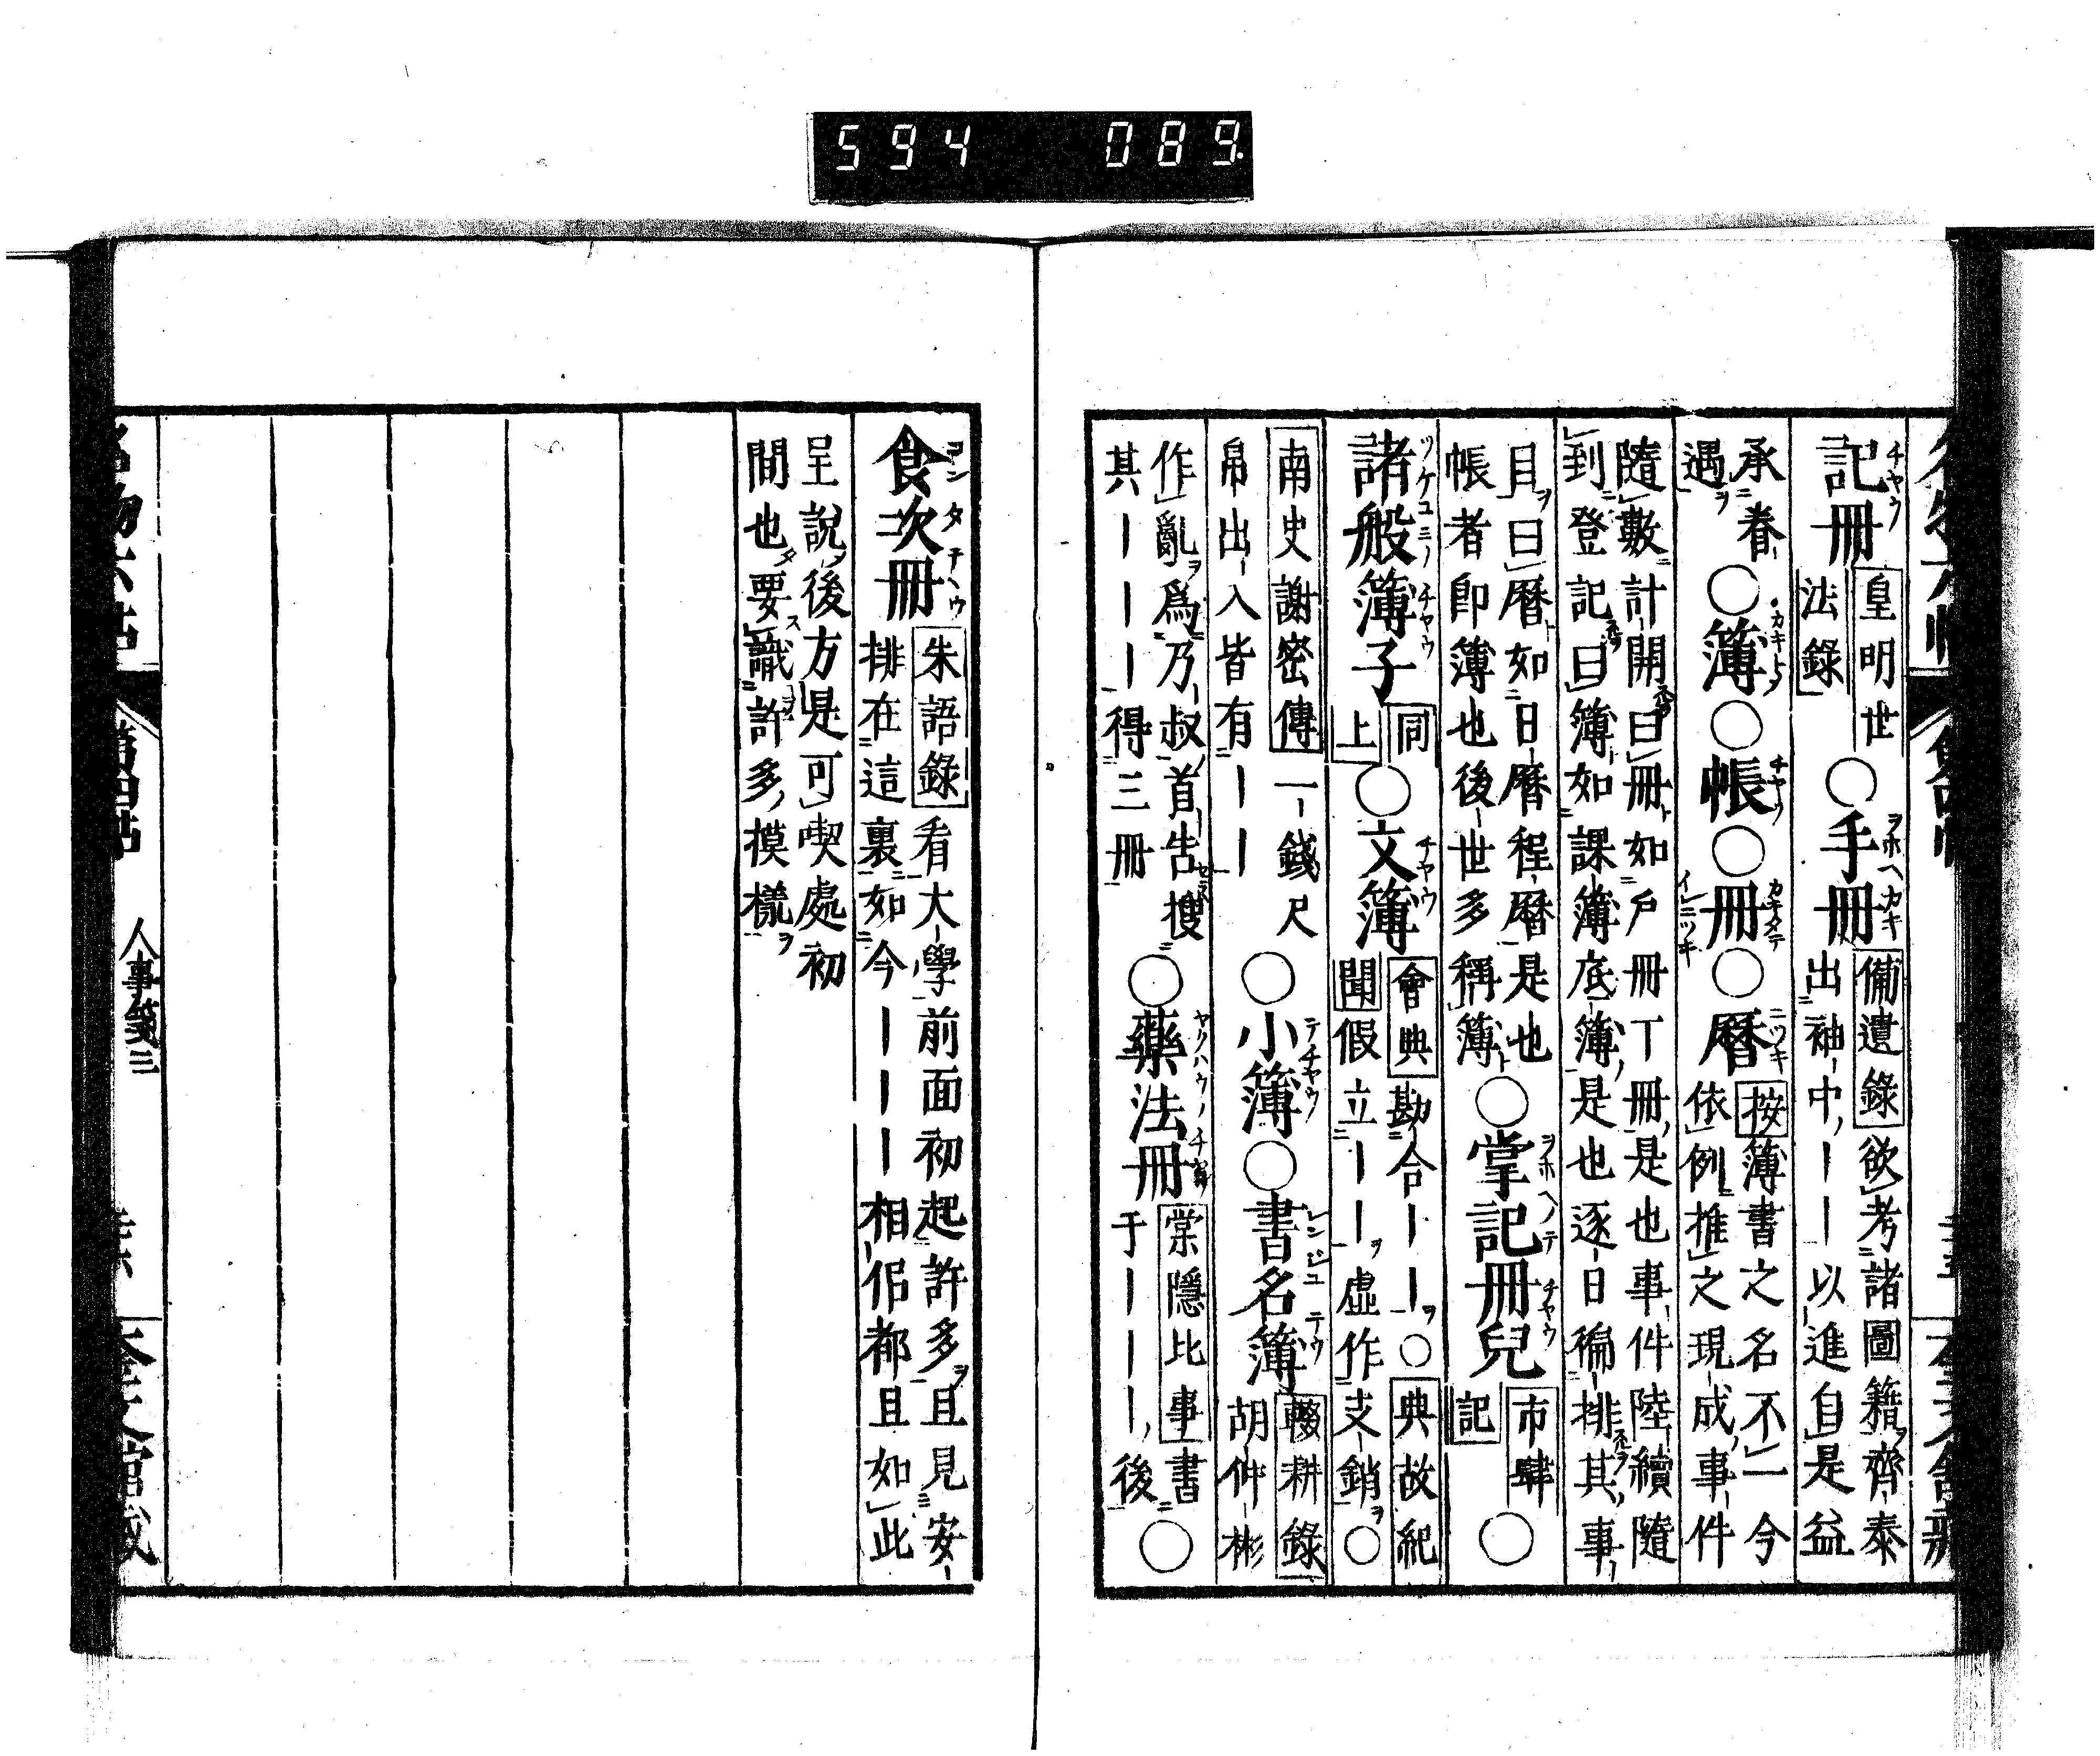 594 089
記冊 皇明世法錄 ○手冊 備遺錄 欲考諸圖籍齊泰出袖中｜｜以進自是益
承眷 遇 ○簿 ○帳 ○冊 ○曆 按 簿書之名不一今依例推之現成事件
隨數計開曰冊如戶冊丁冊是也事件陸續隨到登記曰簿如課簿底簿是也逐日徧排其事
目曰曆如日曆程曆是也帳者即簿也後世多稱簿 ○掌記冊兒 市肆記 ○
諸般簿子 同上 ○文簿 會典 勘合｜｜○ 典故紀聞 假立｜｜虛作支銷○
南史謝密傳 一錢尺帛出入皆有｜｜ ○小簿 ○書名簿 輟耕錄 胡仲彬
作亂爲乃叔首告搜其｜｜｜得三冊 ○藥法冊 棠隱比事 書于｜｜｜後 ○
食次冊 朱語錄 看大學前面初起許多且見安排在這裏如今｜｜｜相佀都且如此
呈說後方是可喫處初間也要識許多摸樣
人事箋三